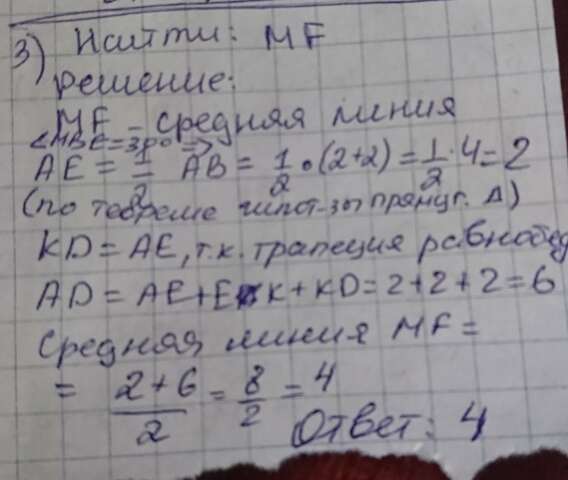 3) Найти: MF
Решение:
MF - средняя линия
<MBE=30° =>
AE = 1/2 AB = 1/2 • (2+2) = 1/2 · 4 = 2
(по теореме гипот-зы прямуг. Δ)
KD = AE, т.к. трапеция равнобед
AD = AE + EK + KD = 2 + 2 + 2 = 6
Средняя линия MF =
= 2+6/2 = 8/2 = 4
Ответ: 4